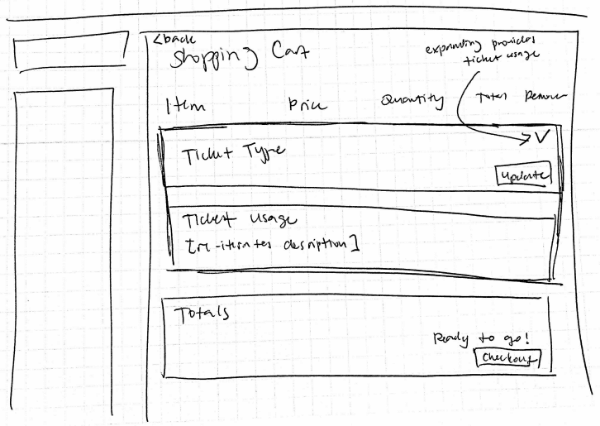 <back
Shopping Cart
expanding provides
ticket usage
Item Price Quantity Total Remove
Ticket Type
update
Ticket Usage
[re-iterates description]
Totals
Ready to go!
Checkout